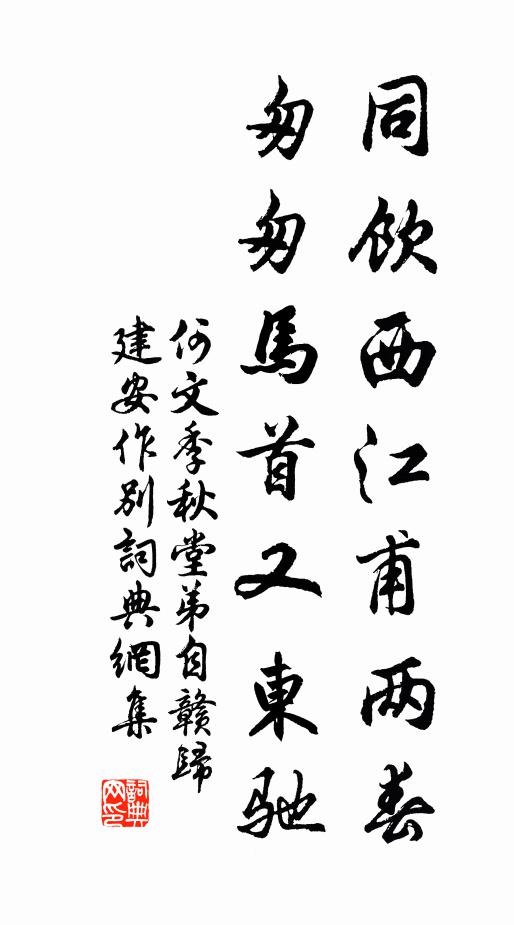 同飲西江甫两春
匆匆馬首又東驰
何文季秋堂弟自贛歸
建安作别詞典網集
詞典网印